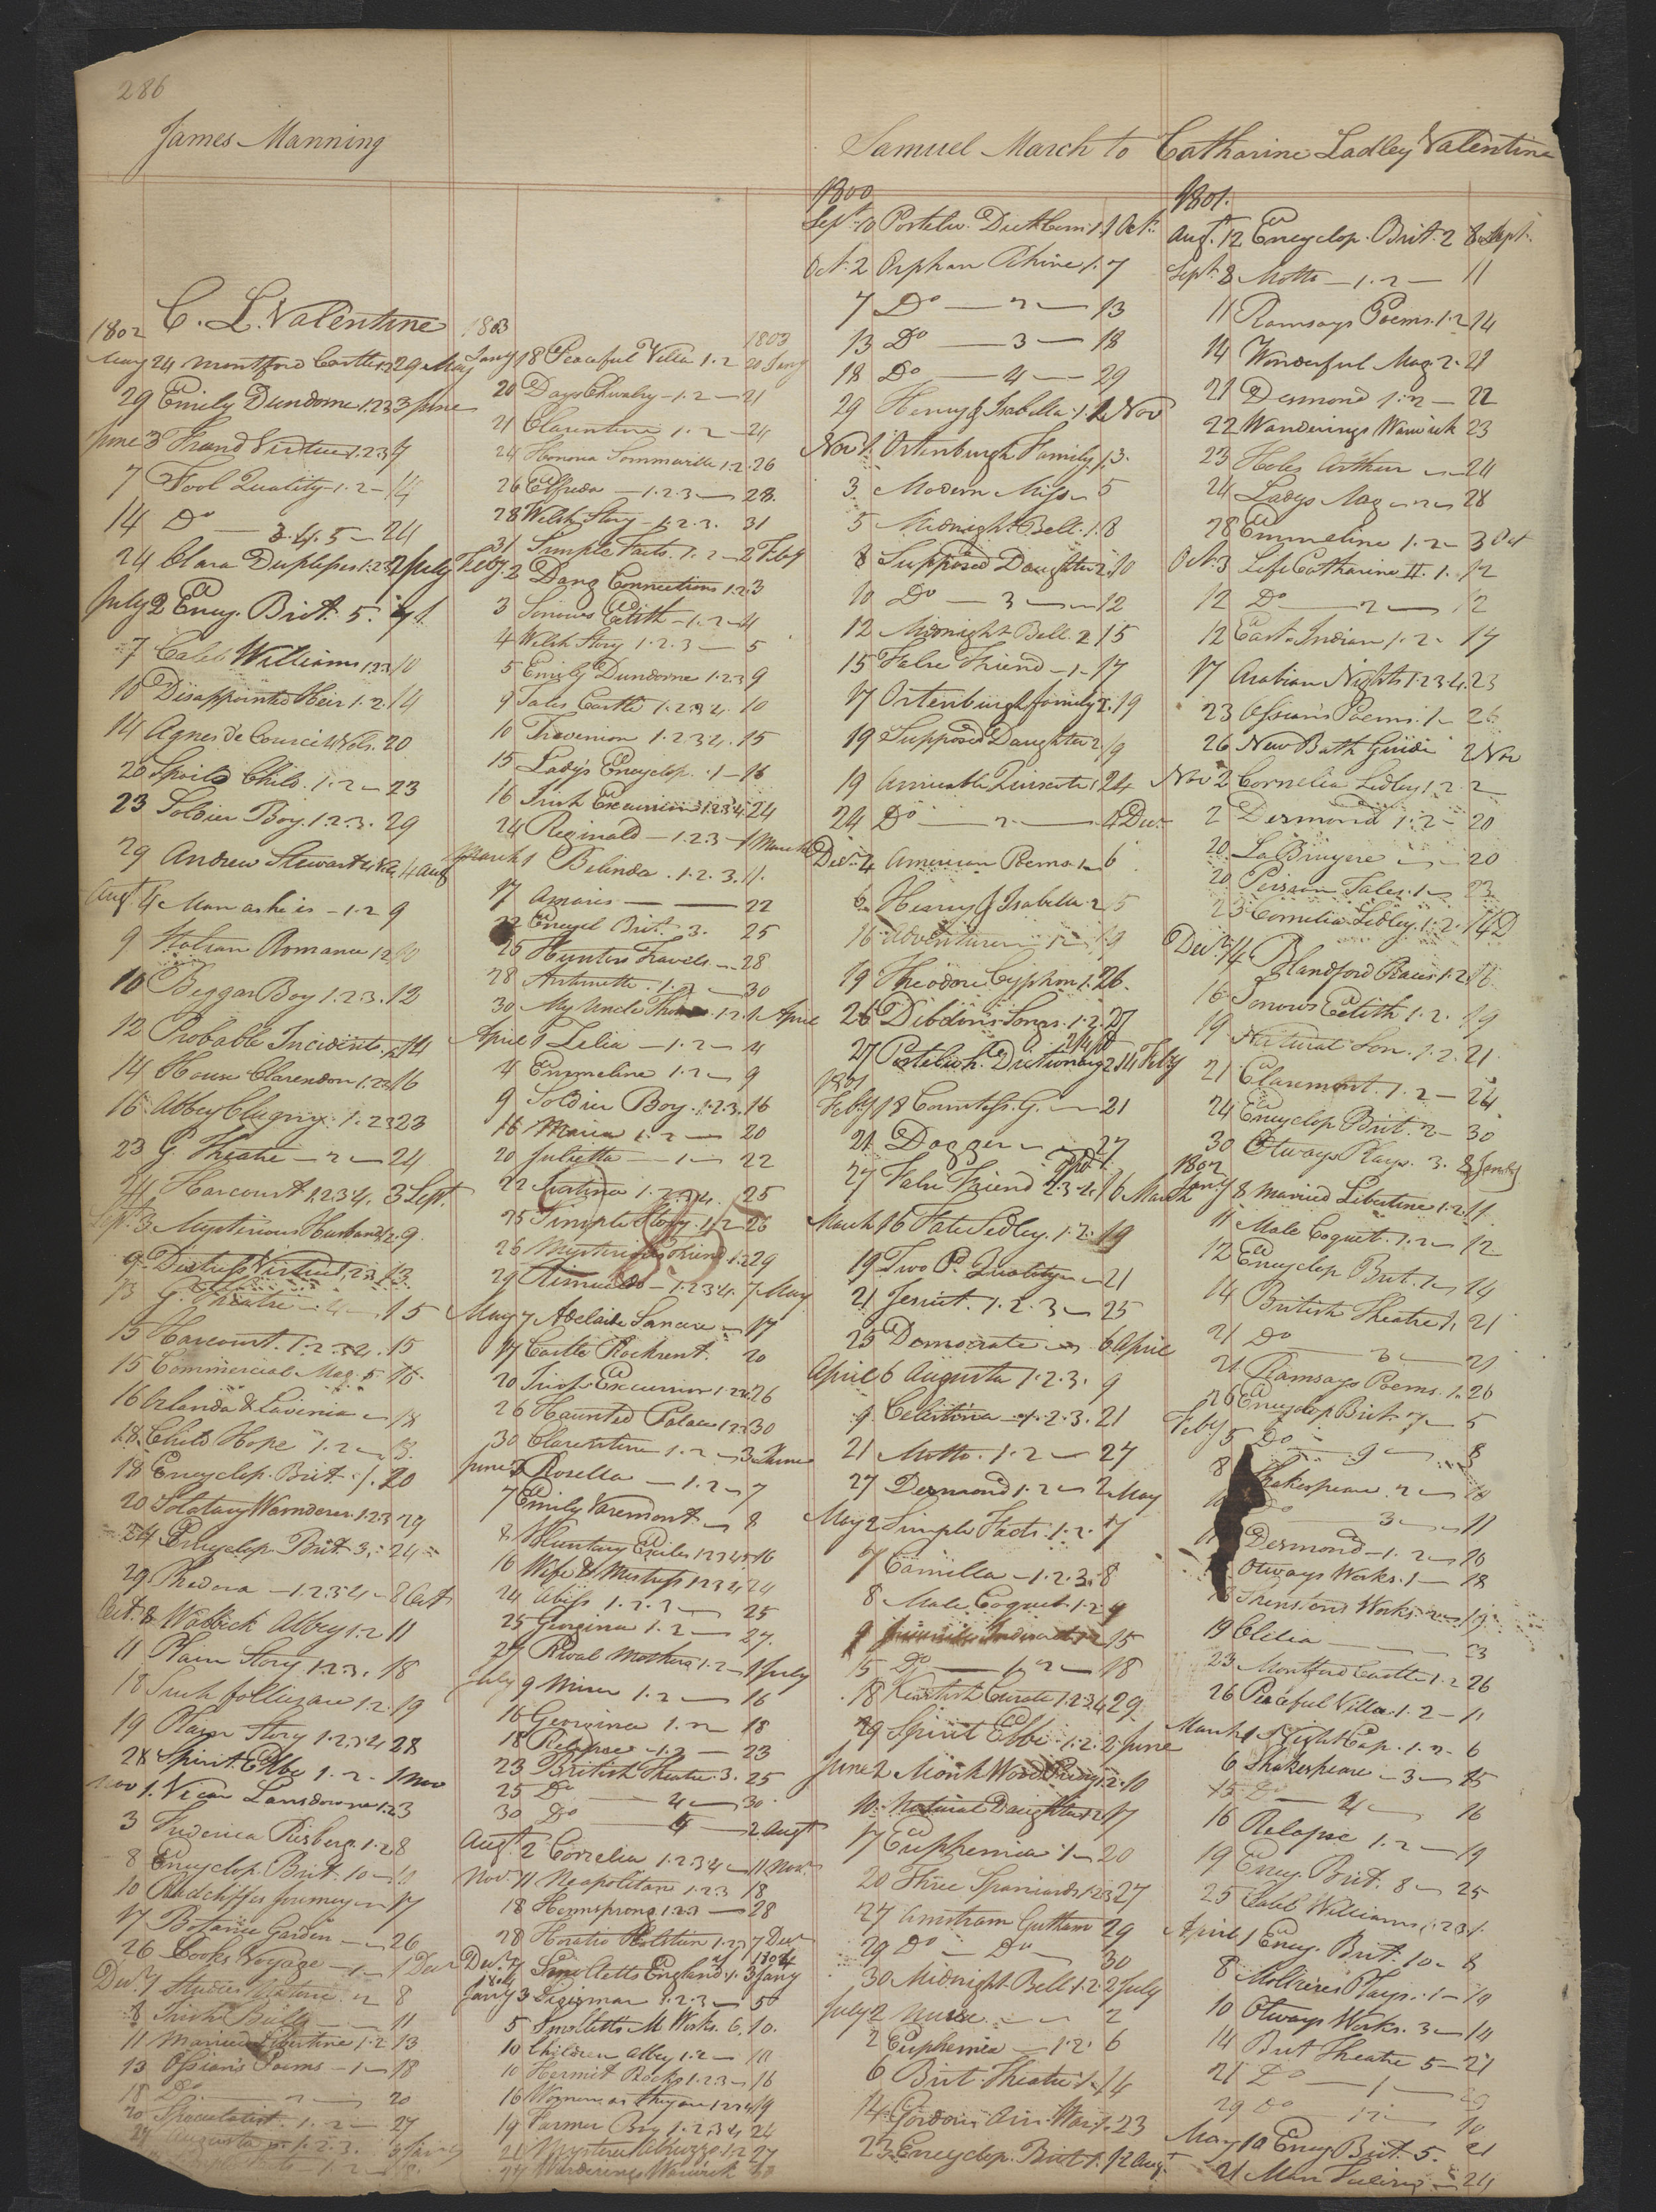 286
James Manning
Samuel March to Catharine Ladley Valentine
C. L. Valentine
1802
May 24 Montford Castle 1.2 29 May
29 Emily Dundorne 1.2.3 3 June
June 3 Fraud Virtue 1.2.3 7
7 Fool Quality 1.2 14
14 Do 3.4.5 24
24 Clara Duplessis 1.2.3 2 July
July 2 Ency. Brit. 5. 7
7 Caleb Williams 1.2.3 10
10 Disappointed Heir 1.2 14
14 Agnes de Courci 4 Vols. 20
20 Spoild Child. 1.2 23
23 Soldier Boy. 1.2.3. 29
29 Andrew Stewart 4 Aug
Augt 4 Man as he is 1.2 9
9 Italian Romance 1.2 10
10 Beggar Boy 1.2.3. 12
12 Probable Incidents 14
14 House Clarendon 1.2.3 16
16 Abbey Clugny. 1.2.3 23
23 G. Theatre 2 24
24 Harcourt 1.2.3.4. 3 Sept.
Sept. 3 Mysterious Husband 1.2. 9
9 Distress Virtue 1.2.3 13
13 G. Theatre 4 15
15 Harcourt. 1.2.3.4. 15
15 Commercial Mag. 5 16
16 Orlando & Lavinia 18
18 Child Hope 1.2 18
18 Encyclop. Brit. 1. 20
20 Solotary Wanderer 1.2.3 24
24 Encyclop. Brit. 3. 24
29 Phedora 1.2.3.4 8 Oct
Oct. 8 Warbick Abbey 1.2 11
11 Plain Story 1.2.3. 18
18 Such follies are 1.2. 19
19 Plain Story 1.2.3.4 28
28 Spirit Elbe 1.2. 1 Nov
Nov 1. Vicar Lansdowne 1.2 3
3 Frederica Risberg. 1.2 8
8 Encyclop. Brit. 10 10
10 Radcliffes Journey 17
17 Botanic Garden 26
26 Cooks Voyage 1 1 Decr
Decr. 1 Studies Nature. 2 8
8 Irish Bulls 11
11 Married Libertine 1.2 13
13 Ossian's Poems 1 18
18 Do 2 20
20 Speculatist. 1.2 27
27 Augusta F. 1.2.3. 3 Jany
1803
1803
Jany 18 Peaceful Villa 1.2 20 Jany
20 Days Chivalry 1.2 21
21 Clarentine 1.2 24
24 Honoria Sommaville 1.2. 26
26 Elfrida 1.2.3 28.
28 Welsh Story 1.2.3. 31
31 Simple Facts. 1.2 2 Feby
Feby. 2 Dang Connections 1.2 3
3 Sorrows Edith 1.2 4
4 Welsh Story 1.2.3 5
5 Emily Dundorne 1.2.3 9
9 Tales Castle 1.2.3.4. 10
10 Trevanion 1.2.3.4. 15
15 Lady's Encyclop. 1 16
16 Irish Excursion 1.2.3.4. 24
24 Reginald 1.2.3 1 March
March 1 Belinda. 1.2.3. 11.
17 Amaris 22
22 Encycl Brit. 3. 25
25 Hunters Travels 28
28 Antoinette. 1.2 30
30 My Uncle Thomas 1.2. 1 April
April 1 Lelia 1.2 4
4 Emmeline 1.2 9
9 Soldier Boy. 1.2.3. 16
16 Maria 1.2 20
20 Julietta 1 22
22 Justina 1.2.3.4. 25
25 Simple Story. 1.2 26
26 Mysterious Friend. 1.2 29
29 Rimualdo 1.2.3.4. 7 May
May 7 Adelaide Sancerre 17
17 Castle Rackrent. 20
20 Irish Excursion 1.2.3.4 26
26 Haunted Palace 1.2.3 30
30 Clarentine 1.2 3 June
June 3 Rosella 1.2 7
7 Emily Varemont 8
8 Voluntary Exiles 1.2.3.4.5 16
16 Wife & Mistress 1.2.3.4 24
24 Abyss 1.2.3 25
25 Georgina 1.2 27.
27 Rival Mothers 1.2 1 July
July 9 Miser 1.2 16
16 Georgina 1.2 18
18 Relapse 1.2 23
23 British Theatre. 3. 25
25 Do 4 30
30 Do 5 2 Augt
Augt. 2 Cornelia 1.2.3.4 11 Novr
Nov. 11 Neapolitan 1.2.3 18
18 Hermsprong 1.2.3 28
28 Horatio Holstein 1.2.3 7 Decr
Decr. 7 Smolletts England. 1. 3 Jany 1804
1804
Jany 3 Sigismar 1.2.3 5
5 Smolletts M Works. 6. 10.
10 Children Abbey 1.2 10
10 Hermit Rocks 1.2.3 16
16 Women as they are 1.2.3.4 19
19 Farmer Boy 1.2.3.4 24
24 Mysteries Abruzzo. 1.2 27
27 Wanderings Warwick 30
1800
Sept. 10 Portelu. Dict Com. 1. 1 Oct.
Oct. 2 Orphan Rhine 1. 7
7 Do 2 13
13 Do 3 18
18 Do 4 29
29 Henry & Isabella. 1. 1 Nov
Nov 1. Ortenburgh Family. 1. 3.
3. Modern Miss 5
5 Midnight Bell. 1. 8
8 Supposed Daughter 2. 10
10 Do 3 12
12 Midnight Bell. 2 15
15 False Friend 1 17
17 Ortenburgh family 2. 19
19 Supposed Daughter 2. 19
19 Amicable Quixote 1 24
24 Do 2 4 Decr
Decr. 4 American Poems 1 6
6 Henry & Isabella. 2 15
16 Adventurer 1 19
19 Theodore Cyphon 1. 26.
26 Dibdins Songs. 1.2. 27
27 Postelwh. Dictionary 2 14 Feby
1801
Feby 18 Countess. G. 21
21 Dagger 27
27 False Friend 2.3.4. 16 March
March 16 Fate Sedley. 1.2. 19
19 Two P. Quality 21
21 Jesuit. 1.2.3 25
25 Democrate 6 April
April 6 Augusta 1.2.3. 9
9 Celestina 1.2.3. 21
21 Motto. 1.2 27
27 Desmond 1.2 2 May
May 2 Simple Facts. 1.2. 7
7 Camilla 1.2.3. 8
8 Male Coquet. 1.2 9
9 Juvenile Indiscret. 15
15 Do 1.2 18
18 Kentish Curate 1.2.3.4 29
29 Spirit Elbe 1.2. 2 June
June 2 Monk Wood Priory 1.2. 10
10. Natural Daughter 1.2 17
17 Euphemia 1 20
20 Three Spaniards 1.2.3 27
27 Amstram Guttam 29
29 Do Do 30
30 Midnight Bell. 1.2. 2 July
July 2 Nurse 2
2 Euphemia 1.2. 6
6 Brit. Theatre 1 14
14 Gordons Am. War. 1. 23
23 Encyclop. Brit 1. 12 Augt
1801.
Augt. 12 Encyclop. Brit. 2 8 Sept.
Sept. 8 Motto 1.2 11
11 Ramsays Poems. 1.2 14
14 Wonderful Mag. 2. 21
21 Desmond 1.2 22
22 Wanderings Warwick 23
23 Holes Arthur 24
24 Ladys Mag 28
28 Emmeline 1.2 3 Oct
Oct. 3 Life Catharine II. 1. 12
12 Do 2 12
12 East Indian 1.2. 17
17 Arabian Nights 1.2.3.4. 23
23 Ossian's Poems. 1 26
26 New Bath Guide 2 Nov
Nov 2 Cornelia Sedley 1.2. 2
2 Desmond 1.2 20
20. La Bruyere 20
20 Persian Tales. 1 23
23 Cornelia Sedley. 1.2. 14 D
Decr. 14 Blandford Races 1.2. 16
16 Sorrows Edith 1.2. 19
19 Natural Son. 1.2. 21
21 Claremont. 1.2 24
24 Encyclop Brit. 2 30
30 Otways Plays. 3. 8 Jany
1802
Jany 8 Married Libertine 1.2. 11.
11 Male Coquet. 1.2 12
12 Encyclop Brit. 1 14
14 British Theatre 1. 21
21 Do 3 21
21 Ramsays Poems. 1. 26
26 Encyclop Brit. 7 5
Feby 5 Do 9 8
8 Shakespeare 2 10
10 Do 3 11
11 Desmond 1.2 16
Otways Works. 1 18
18 Shenstons Works. 2 19
19 Clelia 23
23 Montford Castle 1.2 26
26 Peaceful Villa 1.2 11
March 1 Night Cap. 1.2. 6
6 Shakespeare 3 15
15 Do 4 16
16 Relapse 1.2 19
19 Ency. Brit. 8 25
25 Caleb Williams 1.2.3 1.
April 1 Ency. Brit. 10 8
8 Mollieres Plays. 1 10
10 Otways Works. 3 14
14 Brit Theatre 5 21
21 Do 1 29
29 Do 12 10
May 10 Ency Brit. 5. 21
21 Man Feeling 24